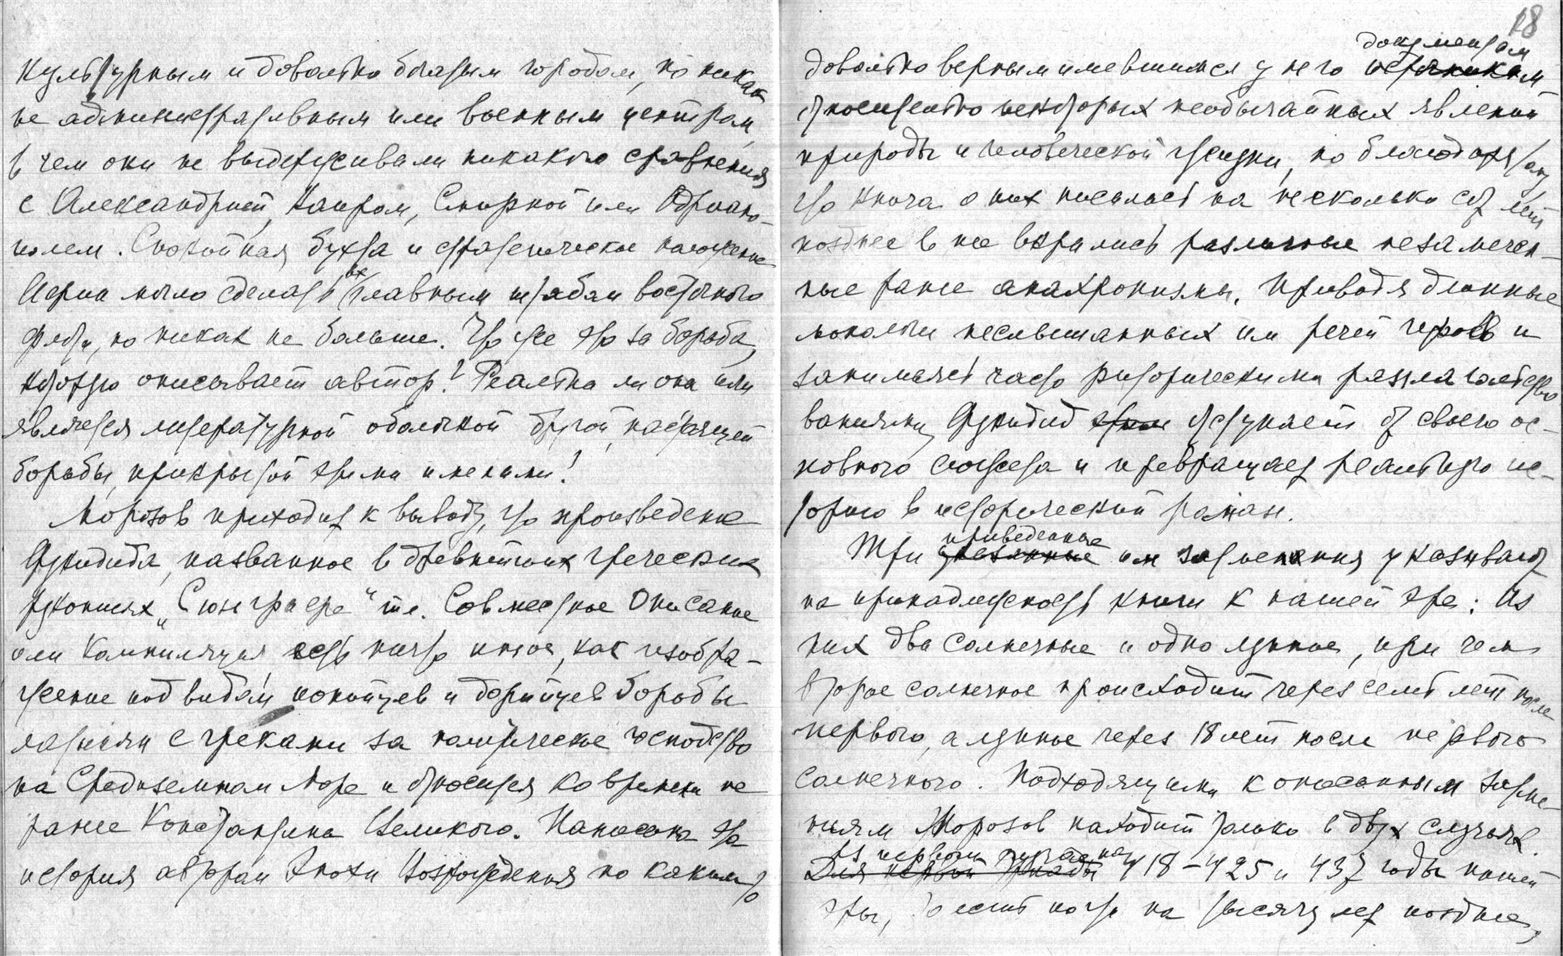 культурным и довольно богатым городом, но никак
не административным или военным центром,
в чем они не выдерживали никакого сравнения
с Александрией, Каиром, Смирной или Адриано-
полем. Спокойная бухта и стратегическое положение
Пирея могло сделать их главным штабом восточного
флота, но никак не больше. Что же это за борьба,
которую описывает автор? Реальна ли она или
является литературной оболочкой другой, настоящей
борьбы, прикрытой этими именами?
Морозов приходит к выводу, что произведение
Фукидида, названное в древнейших греческих
рукописях „Сюнграфе“ т.е. Совместное Описание
или Компиляция есть ничто иное, как изобра-
жение под видом ионийцев и дорийцев борьбы
латинян с греками за политическое господство
на Средиземном море и относится ко времени не
ранее Константина Великого. Написана эта
история автором Эпохи Возрождения по каким
18
документам
довольно верным имевшимся у него источникам
относительно некоторых необычайных явлений
природы и человеческой жизни, но благодаря тому
что книга о них писалась на несколько сот лет
позднее в нее вкрались различные незамечен-
ные ранее анахронизмы. Приводя длинные
монологи неслышанных им речей героев и
занимаясь часто риторическими разглагольство
ваниями, Фукидид этим отступает от своего ос-
новного сюжета и превращает реальную ис-
торию в исторический роман.
приведенные
Три указанные им затмения указывают
на принадлежность книги к нашей эре: Из
них два солнечные и одно лунное, при чем
второе солнечное происходит через семь лет после
первого, а лунное через 18 лет после первого
солнечного. Подходящими к описанным затме
ниям Морозов находит только в двух случаях.
Из первой триады на
Для первой триады 418–425 и 437 годы нашей
эры, то есть почти на тысячу лет позднее,